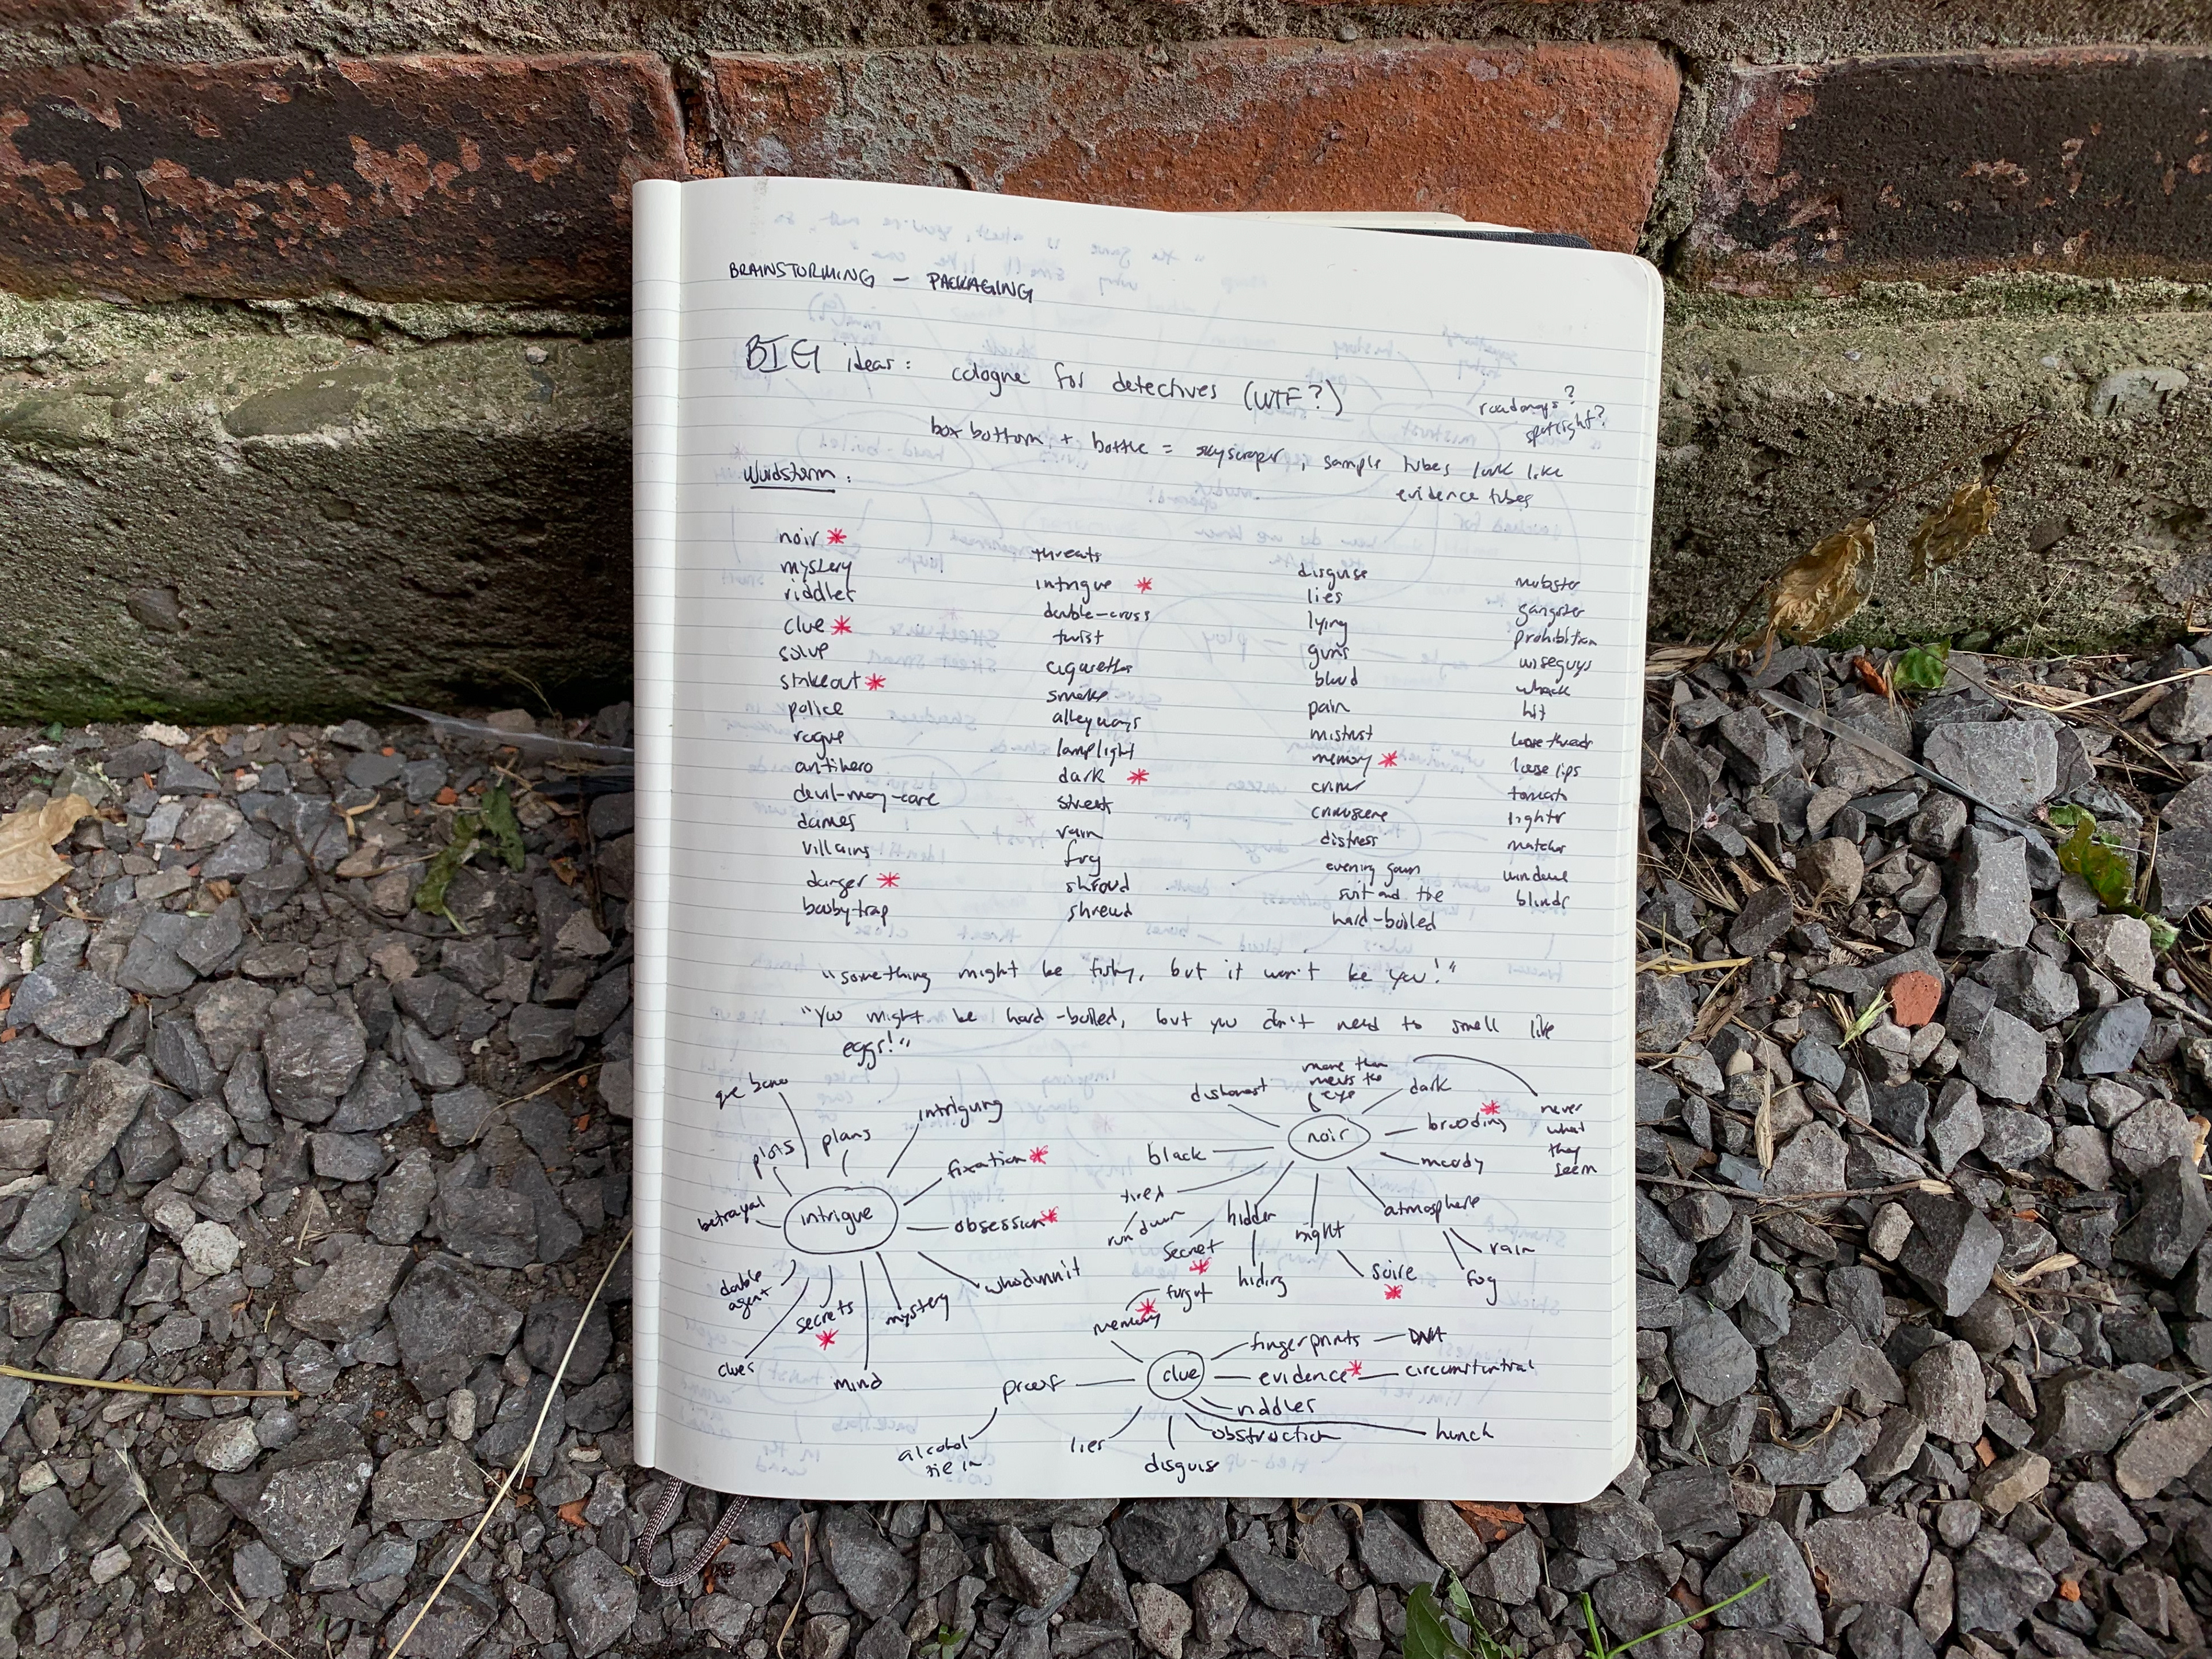 BRAINSTORMING – PACKAGING
BIG ideas: cologne for detectives (WTF?)
roadmaps?
spotlight?
box bottom + bottle = skyscraper, sample tubes look like
evidence tubes
Wordstorm:
noir *
mystery
riddles
clue *
solve
stakeout *
police
rogue
antihero
devil-may-care
dames
villains
danger *
booby-trap
threats
intrigue *
double-cross
twist
cigarettes
smoke
alleyways
lamplight
dark *
street
rain
fog
shroud
shrewd
disguise
lies
lying
guns
blood
pain
mistrust
memory *
crime
crimescene
distress
evening gown
suit and tie
hard-boiled
mobster
gangster
prohibition
wiseguys
whack
hit
loose threads
loose lips
tomato
lights
matches
windows
blinds
"something might be fishy, but it won't be you!"
"you might be hard-boiled, but you don't need to smell like
eggs!"
intrigue
que bono
plots
plans
intriguing
fixation *
obsession *
whodunnit
mystery
mind
secrets *
clues
double
agent
betrayal
noir
dishonest
more than
meets the
eye
dark
never
what
they
seem
brooding *
moody
atmosphere
rain
fog
night
soire *
hidden
secret *
hiding
tired
run down
black
clue
memory *
forgot
fingerprints – DNA
evidence * – circumstantial
riddles
hunch
obstruction
disguise
lies
proof
alcohol
tie in